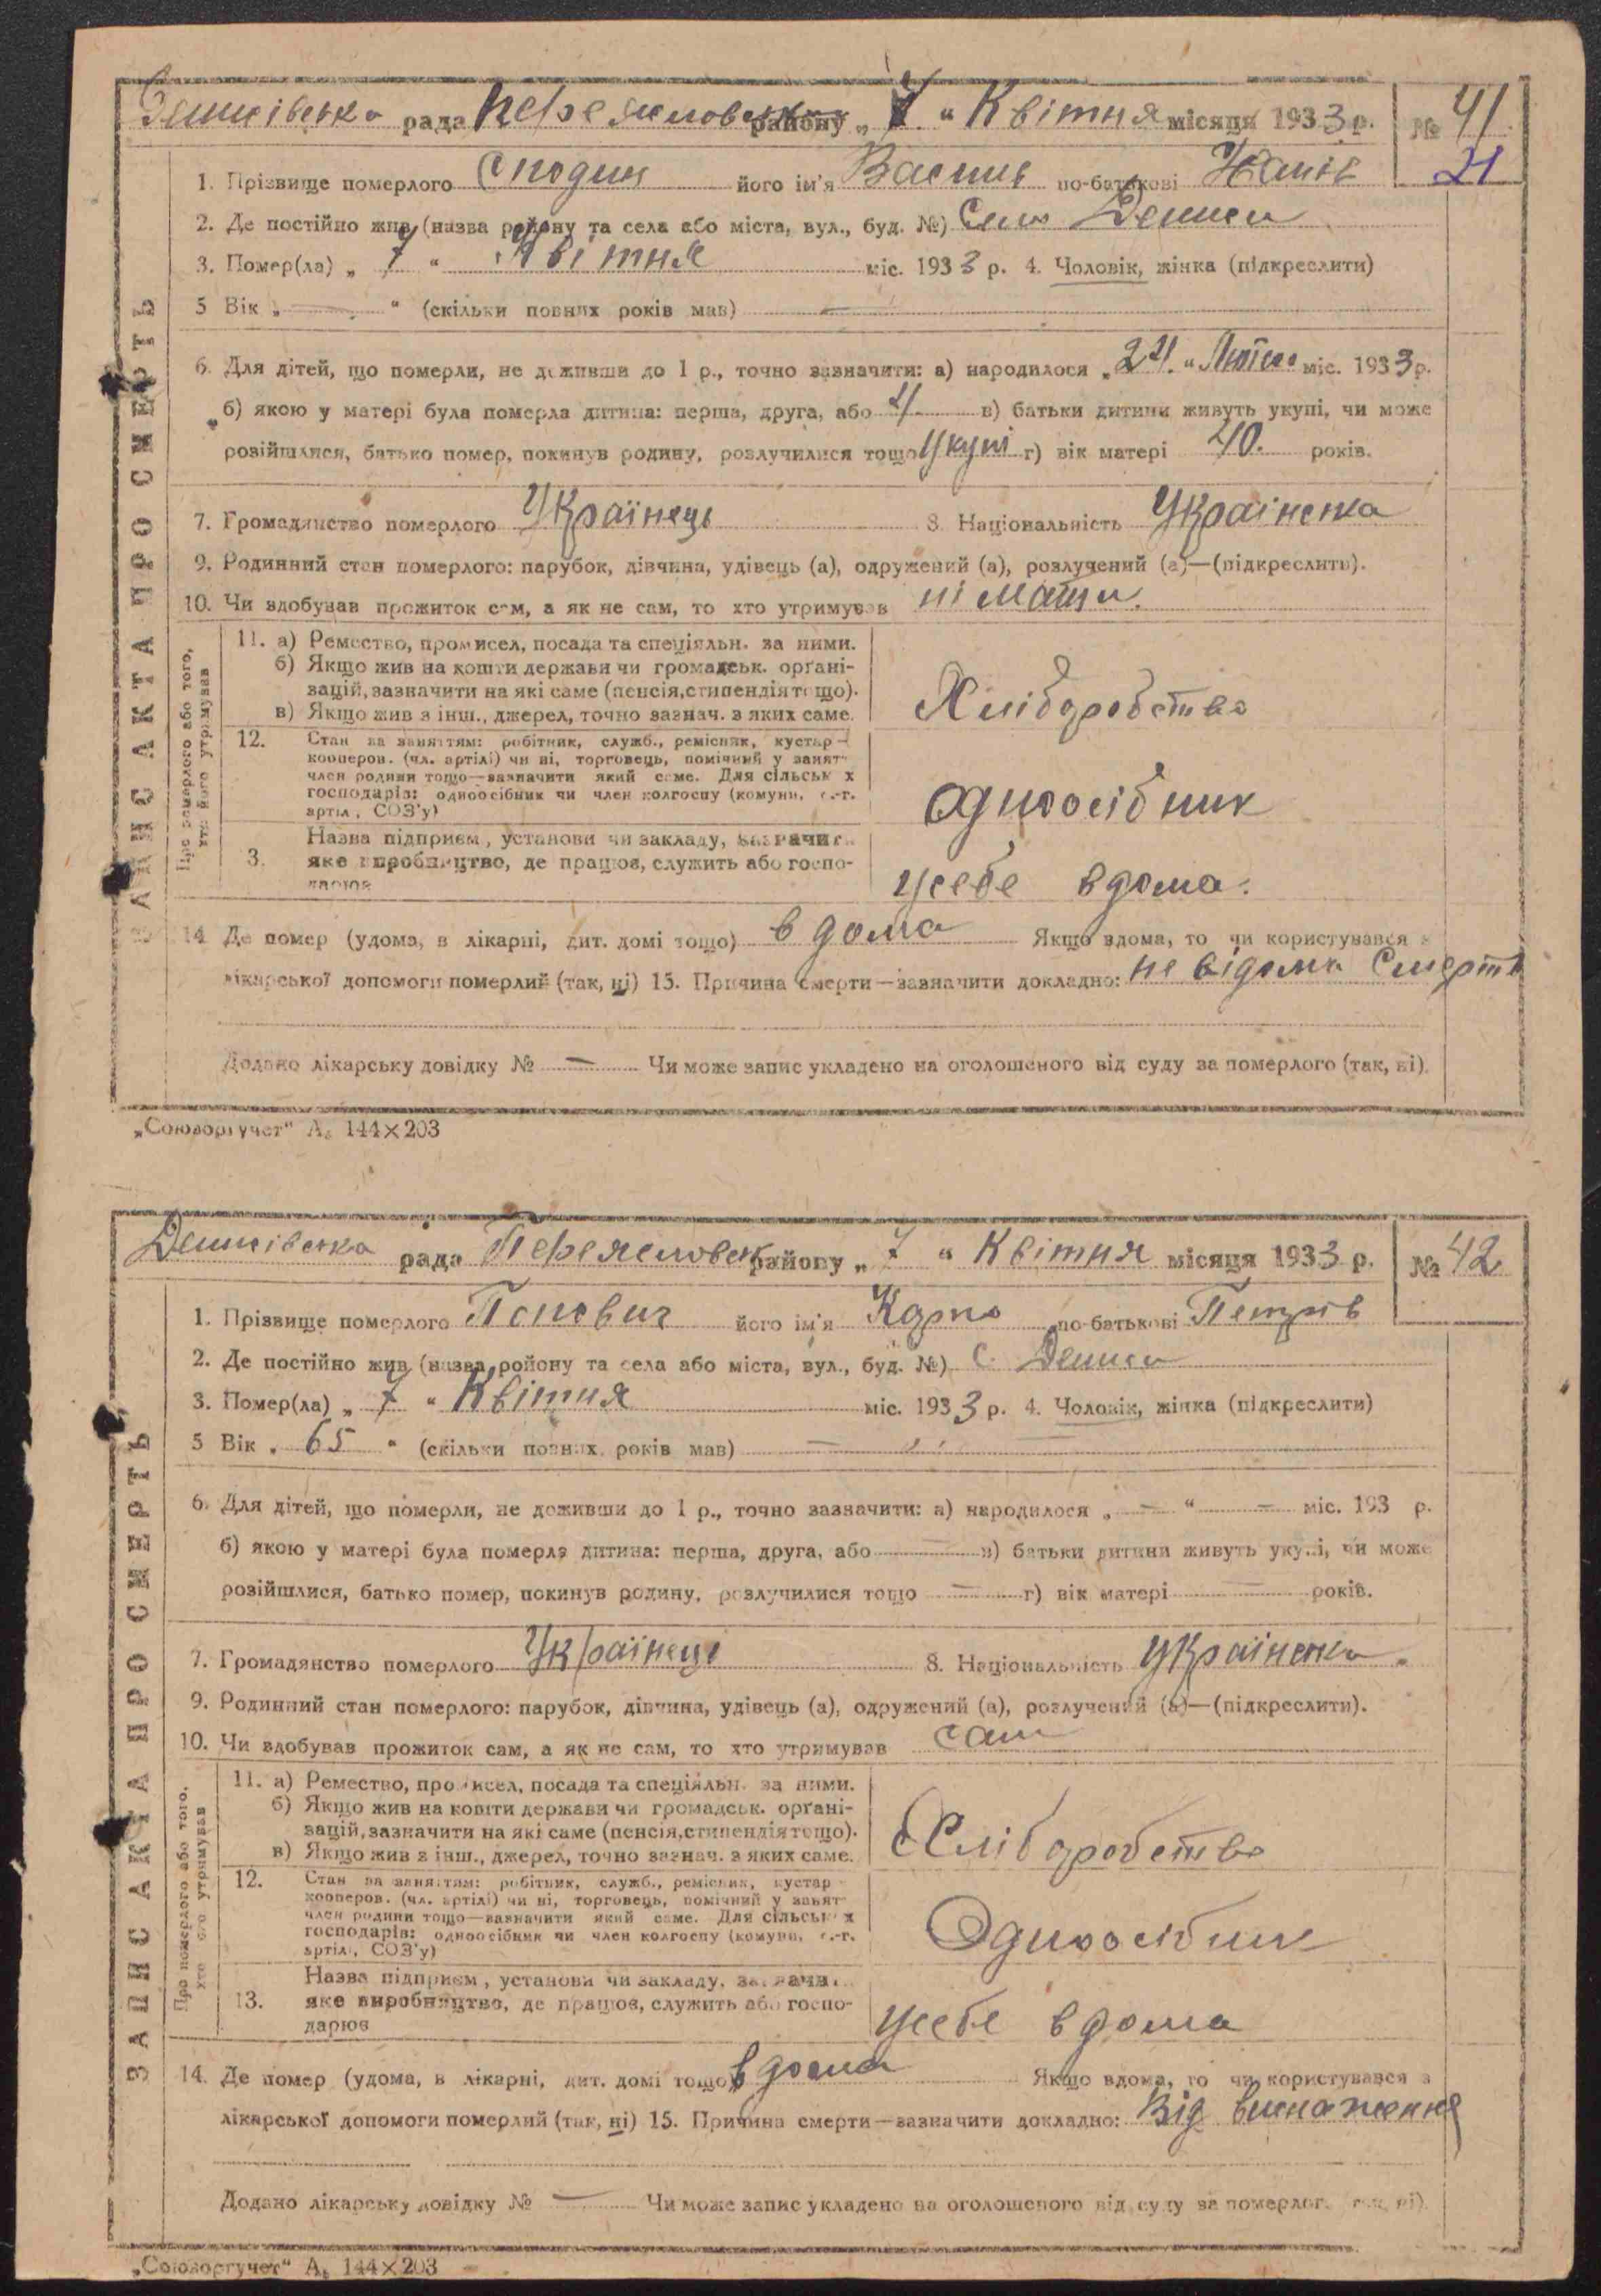 Денисівська рада Переяславськ району „ 7 “ Квітня місяця 1933 р. № 41
21
1. Прізвище померлого Сподин його ім'я Василь по-батькові
2. Де постійно жив (назва району та села або міста, вул., буд. №) Село Дениси
3. Помер(ла) „ 7 “ Квітня міс. 1933 р. 4. Чоловік, жінка (підкреслити)
5 Вік „ — “ (скільки повних років мав) —
6. Для дітей, що померли, не доживши до 1 р., точно зазначити: а) народилося „ 24. “ Лютого міс. 1933 р.
б) якою у матері була померла дитина: перша, друга, або 4 в) батьки дитини живуть укупі, чи може
розійшлися, батько помер, покинув родину, розлучилися тощо Укупі г) вік матері 40. років.
7. Громадянство померлого Українець 8. Національність Українська
9. Родинний стан померлого: парубок, дівчина, удівець (а), одружений (а), розлучений (а)—(підкреслити).
10. Чи здобував прожиток сам, а як не сам, то хто утримував ні мати.
ЗАПИС АКТА ПРО СМЕРТЬ
Про померлого або того,
хто його утримував
11. а) Ремество, промисел, посада та спеціяльн. за ними.
б) Якщо жив на кошти держави чи громадськ. орґані-
зацій, зазначити на які саме (пенсія, стипендія тощо).
в) Якщо жив з інш., джерел, точно зазнач. з яких саме.
Хліборобство
12. Стан за заняттям: робітник, служб., ремісник, кустар-
кооперов. (чл. артілі) чи ні, торговець, помічний у занят-
член родини тощо—зазначити який саме. Для сільськ х
господарів: одноосібник чи член колгоспу (комуни, с.-г.
артіл, СОЗ'у)
одноосібник
3. Назва підприєм, установи чи закладу, зазначити
яке виробництво, де працює, служить або госпо-
дарює
усебе вдома.
14 Де помер (удома, в лікарні, дит. домі тощо) вдома Якщо вдома, то чи користувався з
лікарської допомоги померлий (так, ні) 15. Причина смерти—зазначити докладно: не відома Смерть
Додано лікарську довідку № — Чи може запис укладено на оголошеного від суду за померлого (так, ні).
„Союзоргучет“ А₅ 144×203
Денисівська рада Переяславськ району „ 7 “ Квітня місяця 1933 р. № 42
1. Прізвище померлого Попович його ім'я Карпо по-батькові Петрів
2. Де постійно жив (назва району та села або міста, вул., буд. №) с. Дениси
3. Помер(ла) „ 7 “ Квітня міс. 1933 р. 4. Чоловік, жінка (підкреслити)
5 Вік „ 65 “ (скільки повних років мав) —
6. Для дітей, що померли, не доживши до 1 р., точно зазначити: а) народилося „ — “ — міс. 193 р.
б) якою у матері була померла дитина: перша, друга, або в) батьки дитини живуть укупі, чи може
розійшлися, батько помер, покинув родину, розлучилися тощо — г) вік матері — років.
7. Громадянство померлого Українець 8. Національність українська.
9. Родинний стан померлого: парубок, дівчина, удівець (а), одружений (а), розлучений (а)—(підкреслити).
10. Чи здобував прожиток сам, а як не сам, то хто утримував сам
ЗАПИС АКТА ПРО СМЕРТЬ
Про померлого або того,
хто його утримував
11. а) Ремество, промисел, посада та спеціяльн. за ними.
б) Якщо жив на кошти держави чи громадськ. орґані-
зацій, зазначити на які саме (пенсія, стипендія тощо).
в) Якщо жив з інш., джерел, точно зазнач. з яких саме.
Хліборобство
12. Стан за заняттям: робітник, служб., ремісник, кустар
кооперов. (чл. артілі) чи ні, торговець, помічний у занят-
член родини тощо—зазначити який саме. Для сільськ х
господарів: одноосібник чи член колгоспу (комуни, с.-г.
артіл, СОЗ'у)
Одноосібник
13. Назва підприєм, установи чи закладу, зазначи
яке виробництво, де працює, служить або госпо-
дарює
усебе вдома
14. Де помер (удома, в лікарні, дит. домі тощо) вдома Якщо вдома, то чи користувався з
лікарської допомоги померлий (так, ні) 15. Причина смерти—зазначити докладно: Від виснаження
Додано лікарську довідку № — Чи може запис укладено на оголошеного від суду за померлог (так, ні).
„Союзоргучет“ А₅ 144×203